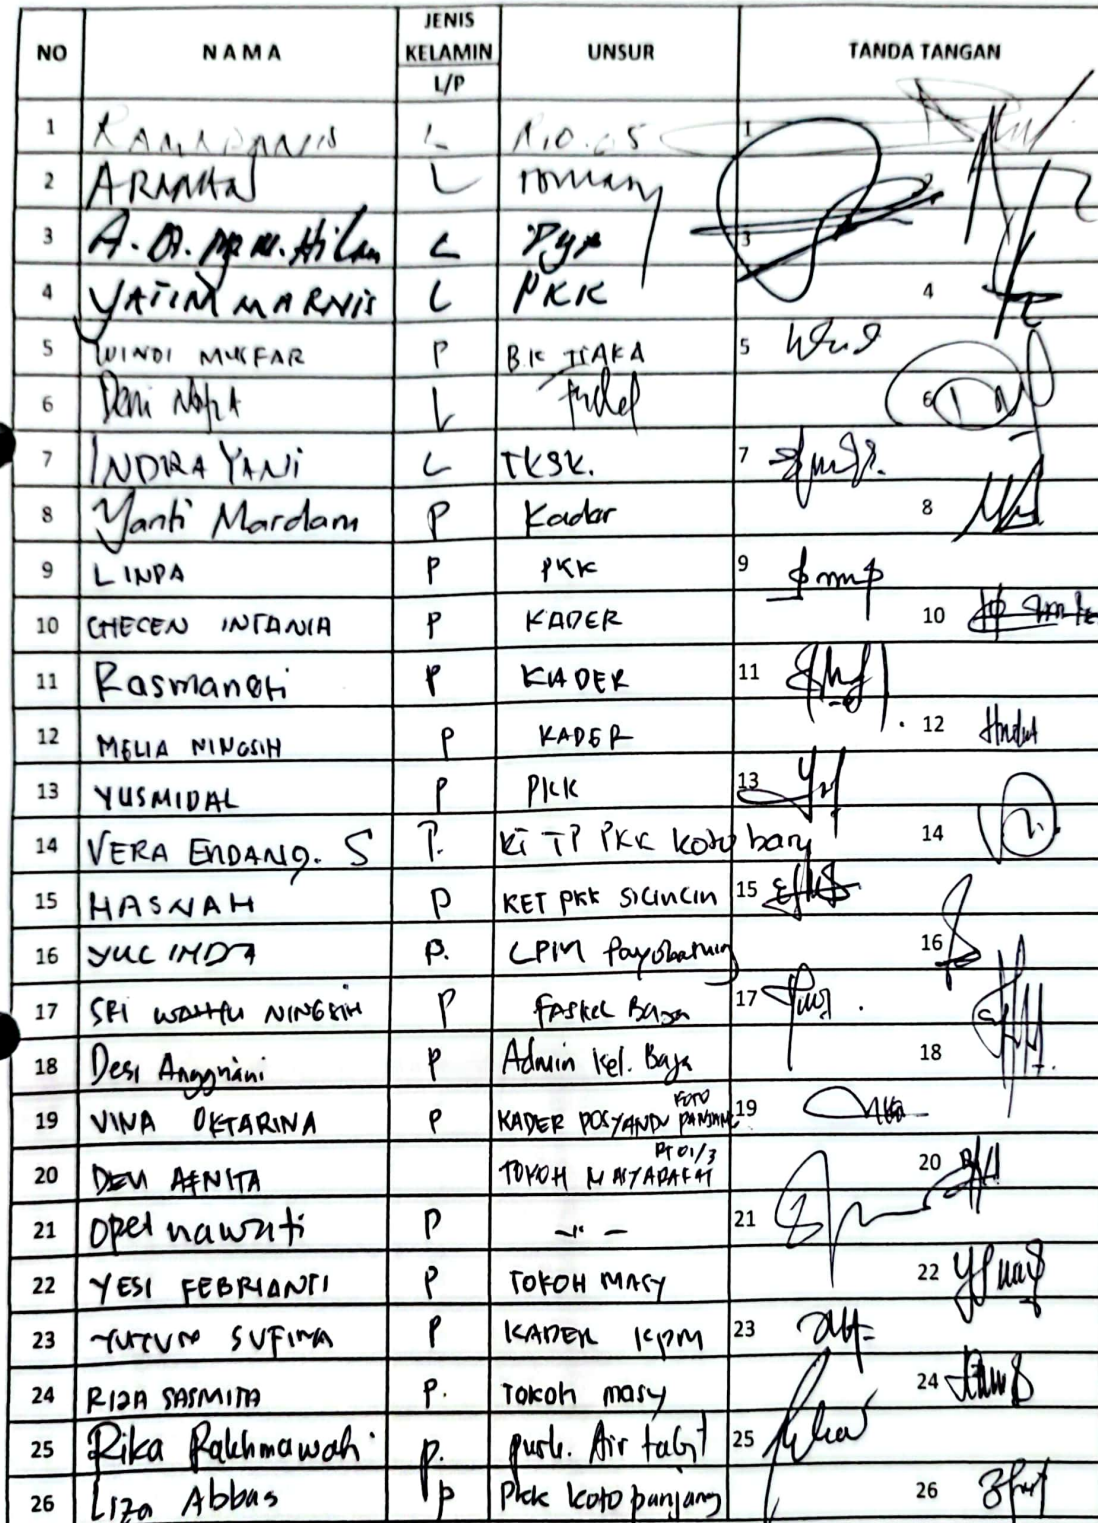 NO NAMA JENIS KELAMIN L/P UNSUR TANDA TANGAN
1 RAMADANIS L 1
2 ARMAN L
3 L 3
4 YATIM MARNIS L PKK 4
5 WINDI MUSFAR P 5
6 Deni L 6
7 INDRA YANI L TKSK. 7
8 Yanti Mardani P Kader 8
9 LINDA P PKK 9
10 CHECEN INTANIA P KADER 10
11 Rasmaneti P KADER 11
12 MELIA NINGSIH P KADER 12
13 YUSMIDAL P PKK 13
14 VERA ENDANG. S P. Kt TP PKK Koto baru 14
15 HASNAH P KET PKK SICINCIN 15
16 P. LPM Payobasung 16
17 SRI WAHYU NINGSIH P FASKEL Baja 17
18 Desi Anggriani P Admin Kel. Baja 18
19 VINA OKTARINA P KADER POSYANDU KOTO PANJANG 19
20 DEVI AFNITA TOKOH MASYARAKAT RT 01/3 20
21 P -"- 21
22 YESI FEBRIANTI P TOKOH MASY 22
23 P KADER KPM 23
24 RIZA SASMITA P. TOKOH masy 24
25 Rika Rakhmawati P. Air tabit 25
26 Liza Abbas P Pkk Koto panjang 26